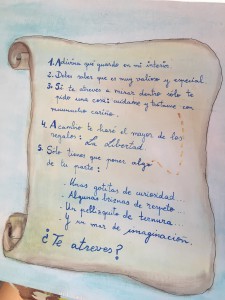 1. Adivina qué guardo en mi interior.
2. Debes saber que es muy valioso y especial
3. Si te atreves a mirar dentro sólo te
pido una cosa: cuídame y trátame con
muuuucho cariño.
4. A cambio te haré el mayor de los
regalos: La Libertad.
5. Sólo tienes que poner algo
de tu parte:
· Unas gotitas de curiosidad...
· Algunas briznas de respeto
· Un pellizquito de ternura...
· Y un mar de imaginación.
¿Te atreves?